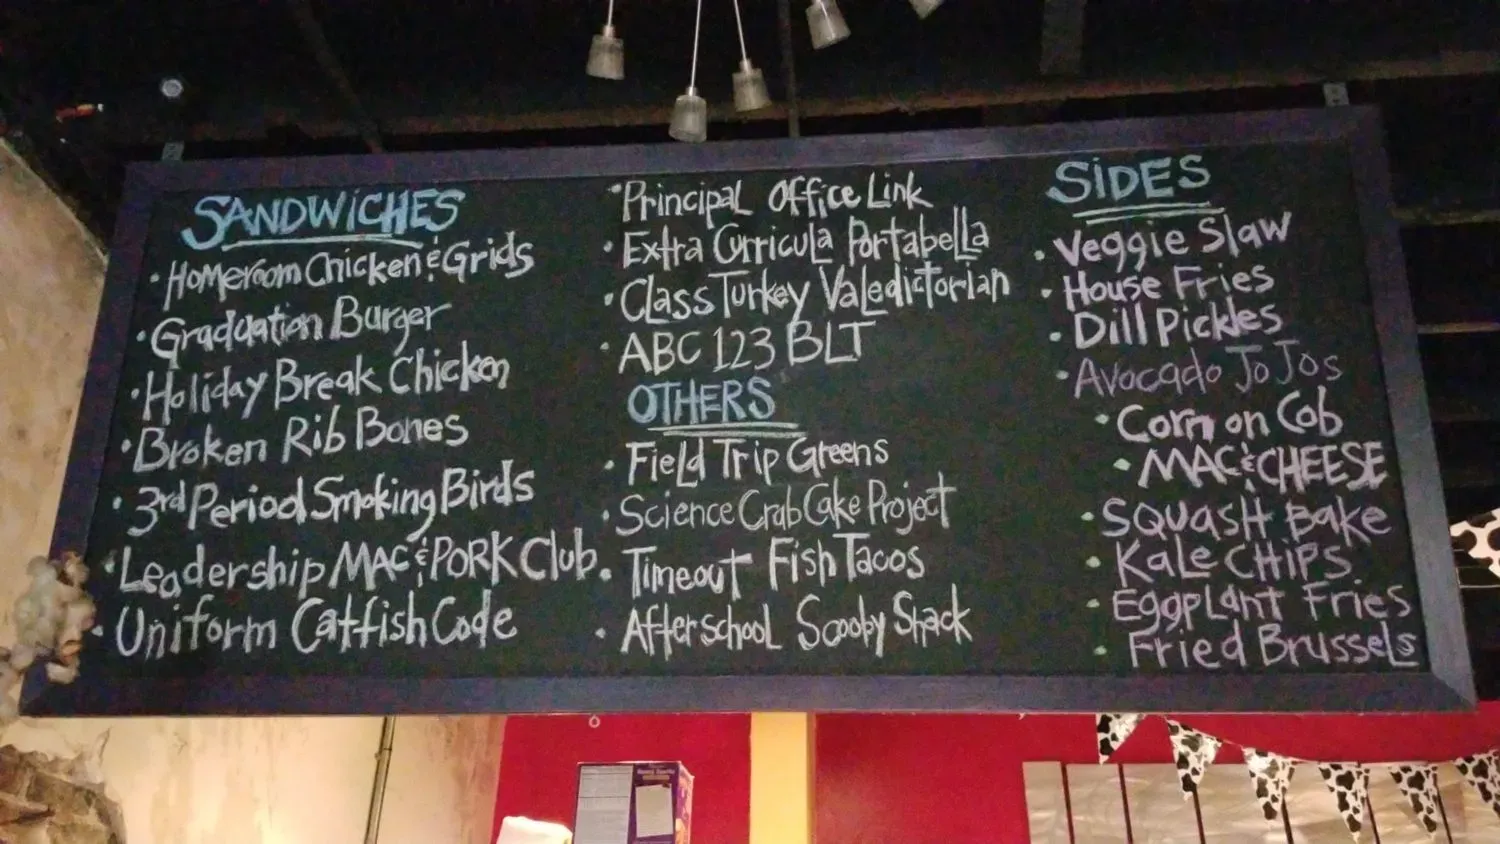 SANDWiCHES
• Homeroom Chicken & Grids
• Graduation Burger
• Holiday Break Chicken
• Broken Rib Bones
• 3rd Period Smoking Birds
• Leadership MAC & PORK Club
• Uniform Catfish Code
• Principal Office Link
• Extra Curricula Portabella
• Class Turkey Valedictorian
• ABC 123 BLT
OTHERS
• Field Trip Greens
• Science Crab Cake Project
• Timeout Fish Tacos
• Afterschool Scooby Shack
SiDES
• Veggie Slaw
• House Fries
• Dill Pickles
• Avocado JoJos
• Corn on Cob
• MAC & CHEESE
• SQUASH Bake
• Kale CHiPS
• Eggplant Fries
• Fried Brussels